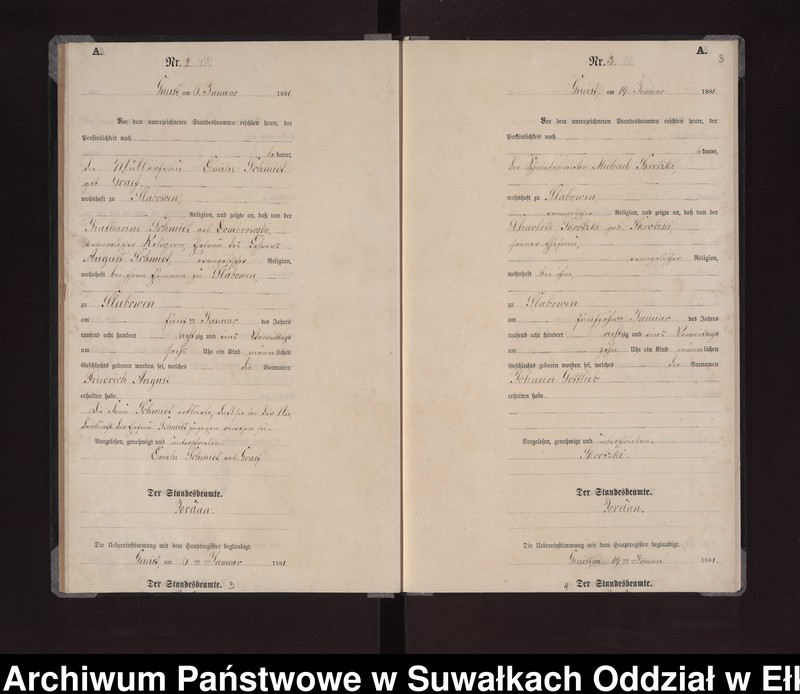 A.
Nr. 2.
am 6. Januar 1881.
Vor dem unterzeichneten Standesbeamten erschien heute, der
Persönlichkeit nach
kannt,
die Emilie Schmidt
geb. Graef
wohnhaft zu Slabowen,
Religion, und zeigte an, daß von der
Katharine Schmidt geb. Dombrowski,
evangelischer Religion, Ehefrau des
August Schmidt, evangelischer Religion,
wohnhaft bei ihrem Ehemann zu Slabowen,
zu Slabowen
am fünften Januar des Jahres
tausend acht hundert achtzig und eins Vormittags
um sechs Uhr ein Kind männlichen
Geschlechts geboren worden sei, welches die Vornamen
Friedrich August
erhalten habe.
Die Frau Schmidt erklärte, daß sie bei der Nie¬
derkunft der Ehefrau Schmidt zugegen gewesen sei.
Vorgelesen, genehmigt und unterschrieben.
Emilie Schmidt geb. Graef
Der Standesbeamte.
Jordan.
Die Uebereinstimmung mit dem Hauptregister beglaubigt.
am 6ten Januar 1881.
Der Standesbeamte.
3
A.
3
Nr. 3.
am 19. Januar 1881.
Vor dem unterzeichneten Standesbeamten erschien heute, der
Persönlichkeit nach
kannt,
der Michael Skrotzki,
wohnhaft zu Slabowen,
evangelischer Religion, und zeigte an, daß von der
Charlotte Skrotzki geb. Skrotzki,
seiner Ehefrau,
evangelischer Religion,
wohnhaft bei ihm,
zu Slabowen
am fünfzehnten Januar des Jahres
tausend acht hundert achtzig und eins Vormittags
um Uhr ein Kind männlichen
Geschlechts geboren worden sei, welches die Vornamen
Johann Gottlieb
erhalten habe.
Vorgelesen, genehmigt und unterschrieben.
Skrotzki.
Der Standesbeamte.
Jordan.
Die Uebereinstimmung mit dem Hauptregister beglaubigt.
am 19ten Januar 1881.
4 Der Standesbeamte.
Archiwum Państwowe w Suwałkach Oddział w Ełk